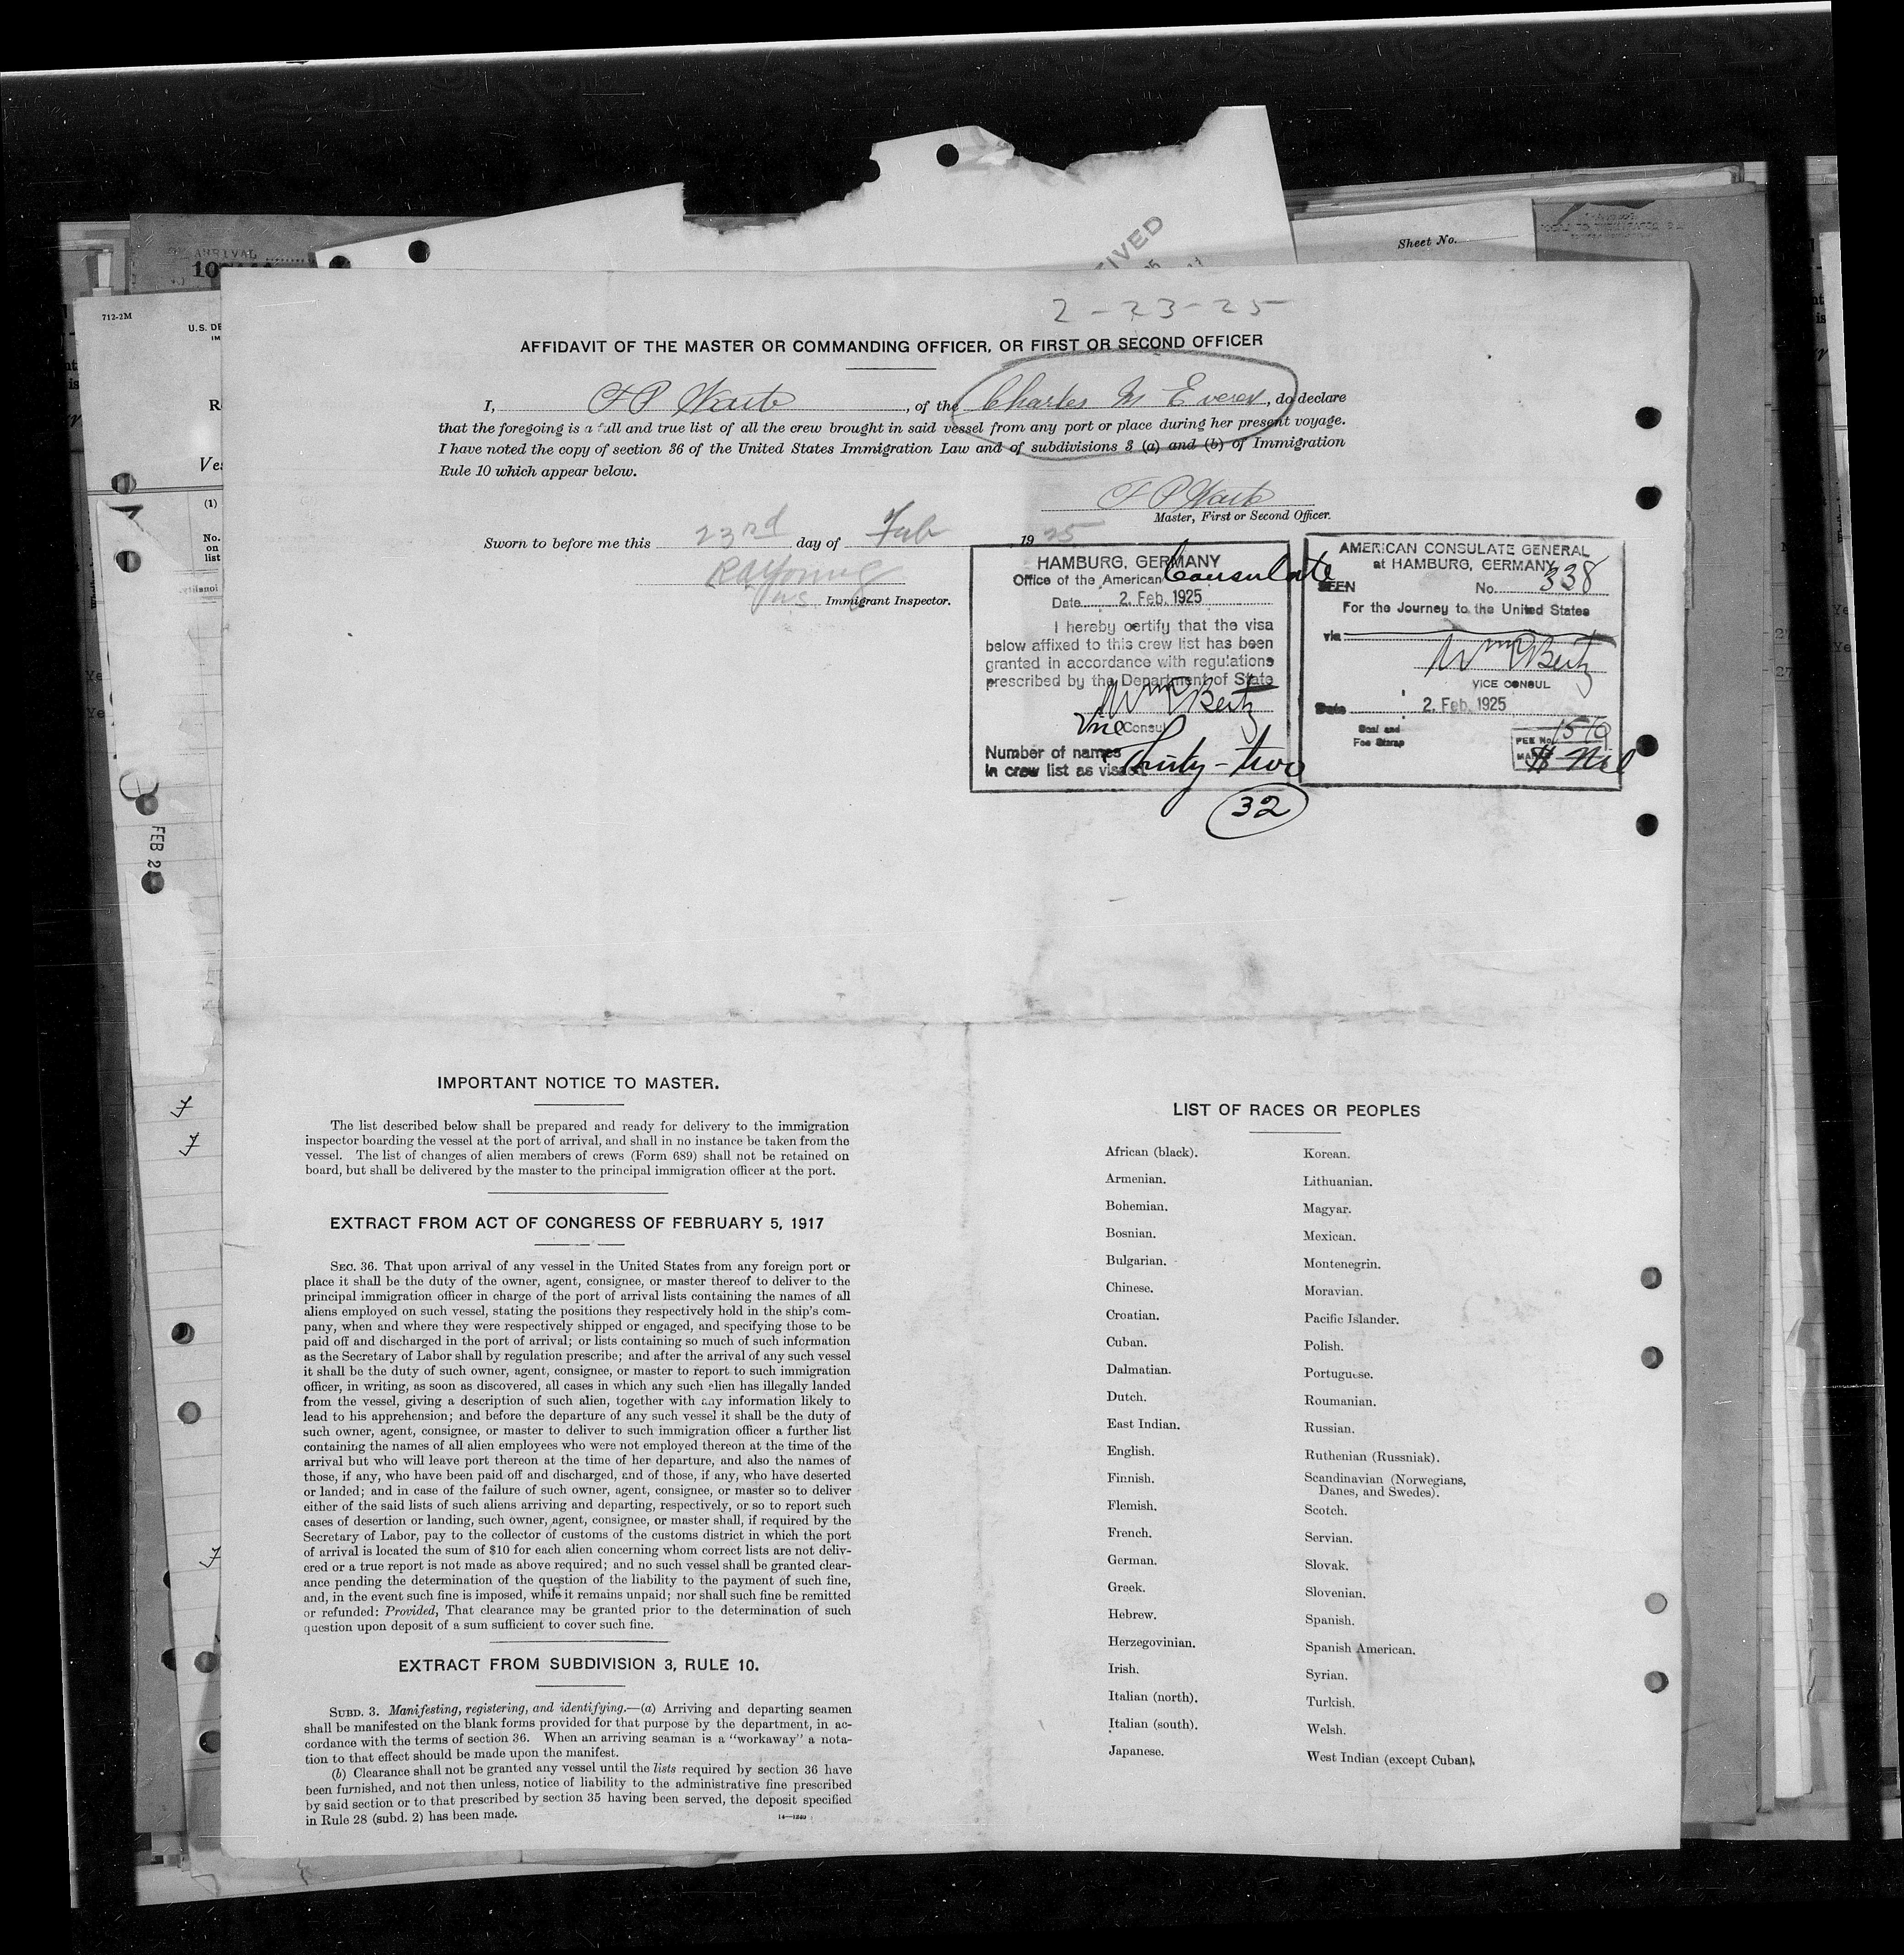 2-23-25
AFFIDAVIT OF THE MASTER OR COMMANDING OFFICER, OR FIRST OR SECOND OFFICER
I, F P Waite, of the Charles M Everest, do declare
that the foregoing is a full and true list of all the crew brought in said vessel from any port or place during her present voyage.
I have noted the copy of section 36 of the United States Immigration Law and of subdivisions 3 (a) and (b) of Immigration
Rule 10 which appear below.
F P Waite
Master, First or Second Officer.
Sworn to before me this 23rd day of Feb 1925
Immigrant Inspector.
HAMBURG, GERMANY
Office of the American Consulate
Date 2. Feb. 1925
I hereby certify that the visa
below affixed to this crew list has been
granted in accordance with regulations
prescribed by the Department of State
Vice Consul
Number of names
in crew list as visaed Thirty-two
32
AMERICAN CONSULATE GENERAL
at HAMBURG, GERMANY
SEEN No. 338
For the Journey to the United States
via
VICE CONSUL
Date 2. Feb. 1925
Seal and
Fee Stamp
FEE No.
$ Nil
IMPORTANT NOTICE TO MASTER.
The list described below shall be prepared and ready for delivery to the immigration
inspector boarding the vessel at the port of arrival, and shall in no instance be taken from the
vessel. The list of changes of alien members of crews (Form 689) shall not be retained on
board, but shall be delivered by the master to the principal immigration officer at the port.
EXTRACT FROM ACT OF CONGRESS OF FEBRUARY 5, 1917
SEC. 36. That upon arrival of any vessel in the United States from any foreign port or
place it shall be the duty of the owner, agent, consignee, or master thereof to deliver to the
principal immigration officer in charge of the port of arrival lists containing the names of all
aliens employed on such vessel, stating the positions they respectively hold in the ship's com-
pany, when and where they were respectively shipped or engaged, and specifying those to be
paid off and discharged in the port of arrival; or lists containing so much of such information
as the Secretary of Labor shall by regulation prescribe; and after the arrival of any such vessel
it shall be the duty of such owner, agent, consignee, or master to report to such immigration
officer, in writing, as soon as discovered, all cases in which any such alien has illegally landed
from the vessel, giving a description of such alien, together with any information likely to
lead to his apprehension; and before the departure of any such vessel it shall be the duty of
such owner, agent, consignee, or master to deliver to such immigration officer a further list
containing the names of all alien employees who were not employed thereon at the time of the
arrival but who will leave port thereon at the time of her departure, and also the names of
those, if any, who have been paid off and discharged, and of those, if any, who have deserted
or landed; and in case of the failure of such owner, agent, consignee, or master so to deliver
either of the said lists of such aliens arriving and departing, respectively, or so to report such
cases of desertion or landing, such owner, agent, consignee, or master shall, if required by the
Secretary of Labor, pay to the collector of customs of the customs district in which the port
of arrival is located the sum of $10 for each alien concerning whom correct lists are not deliv-
ered or a true report is not made as above required; and no such vessel shall be granted clear-
ance pending the determination of the question of the liability to the payment of such fine,
and, in the event such fine is imposed, while it remains unpaid; nor shall such fine be remitted
or refunded: Provided, That clearance may be granted prior to the determination of such
question upon deposit of a sum sufficient to cover such fine.
EXTRACT FROM SUBDIVISION 3, RULE 10.
SUBD. 3. Manifesting, registering, and identifying.—(a) Arriving and departing seamen
shall be manifested on the blank forms provided for that purpose by the department, in ac-
cordance with the terms of section 36. When an arriving seaman is a "workaway" a nota-
tion to that effect should be made upon the manifest.
(b) Clearance shall not be granted any vessel until the lists required by section 36 have
been furnished, and not then unless, notice of liability to the administrative fine prescribed
by said section or to that prescribed by section 35 having been served, the deposit specified
in Rule 28 (subd. 2) has been made.
LIST OF RACES OR PEOPLES
African (black).
Armenian.
Bohemian.
Bosnian.
Bulgarian.
Chinese.
Croatian.
Cuban.
Dalmatian.
Dutch.
East Indian.
English.
Finnish.
Flemish.
French.
German.
Greek.
Hebrew.
Herzegovinian.
Irish.
Italian (north).
Italian (south).
Japanese.
Korean.
Lithuanian.
Magyar.
Mexican.
Montenegrin.
Moravian.
Pacific Islander.
Polish.
Portuguese.
Roumanian.
Russian.
Ruthenian (Russniak).
Scandinavian (Norwegians,
Danes, and Swedes).
Scotch.
Servian.
Slovak.
Slovenian.
Spanish.
Spanish American.
Syrian.
Turkish.
Welsh.
West Indian (except Cuban).
Sheet No.
712-2M
(1)
No.
on
list